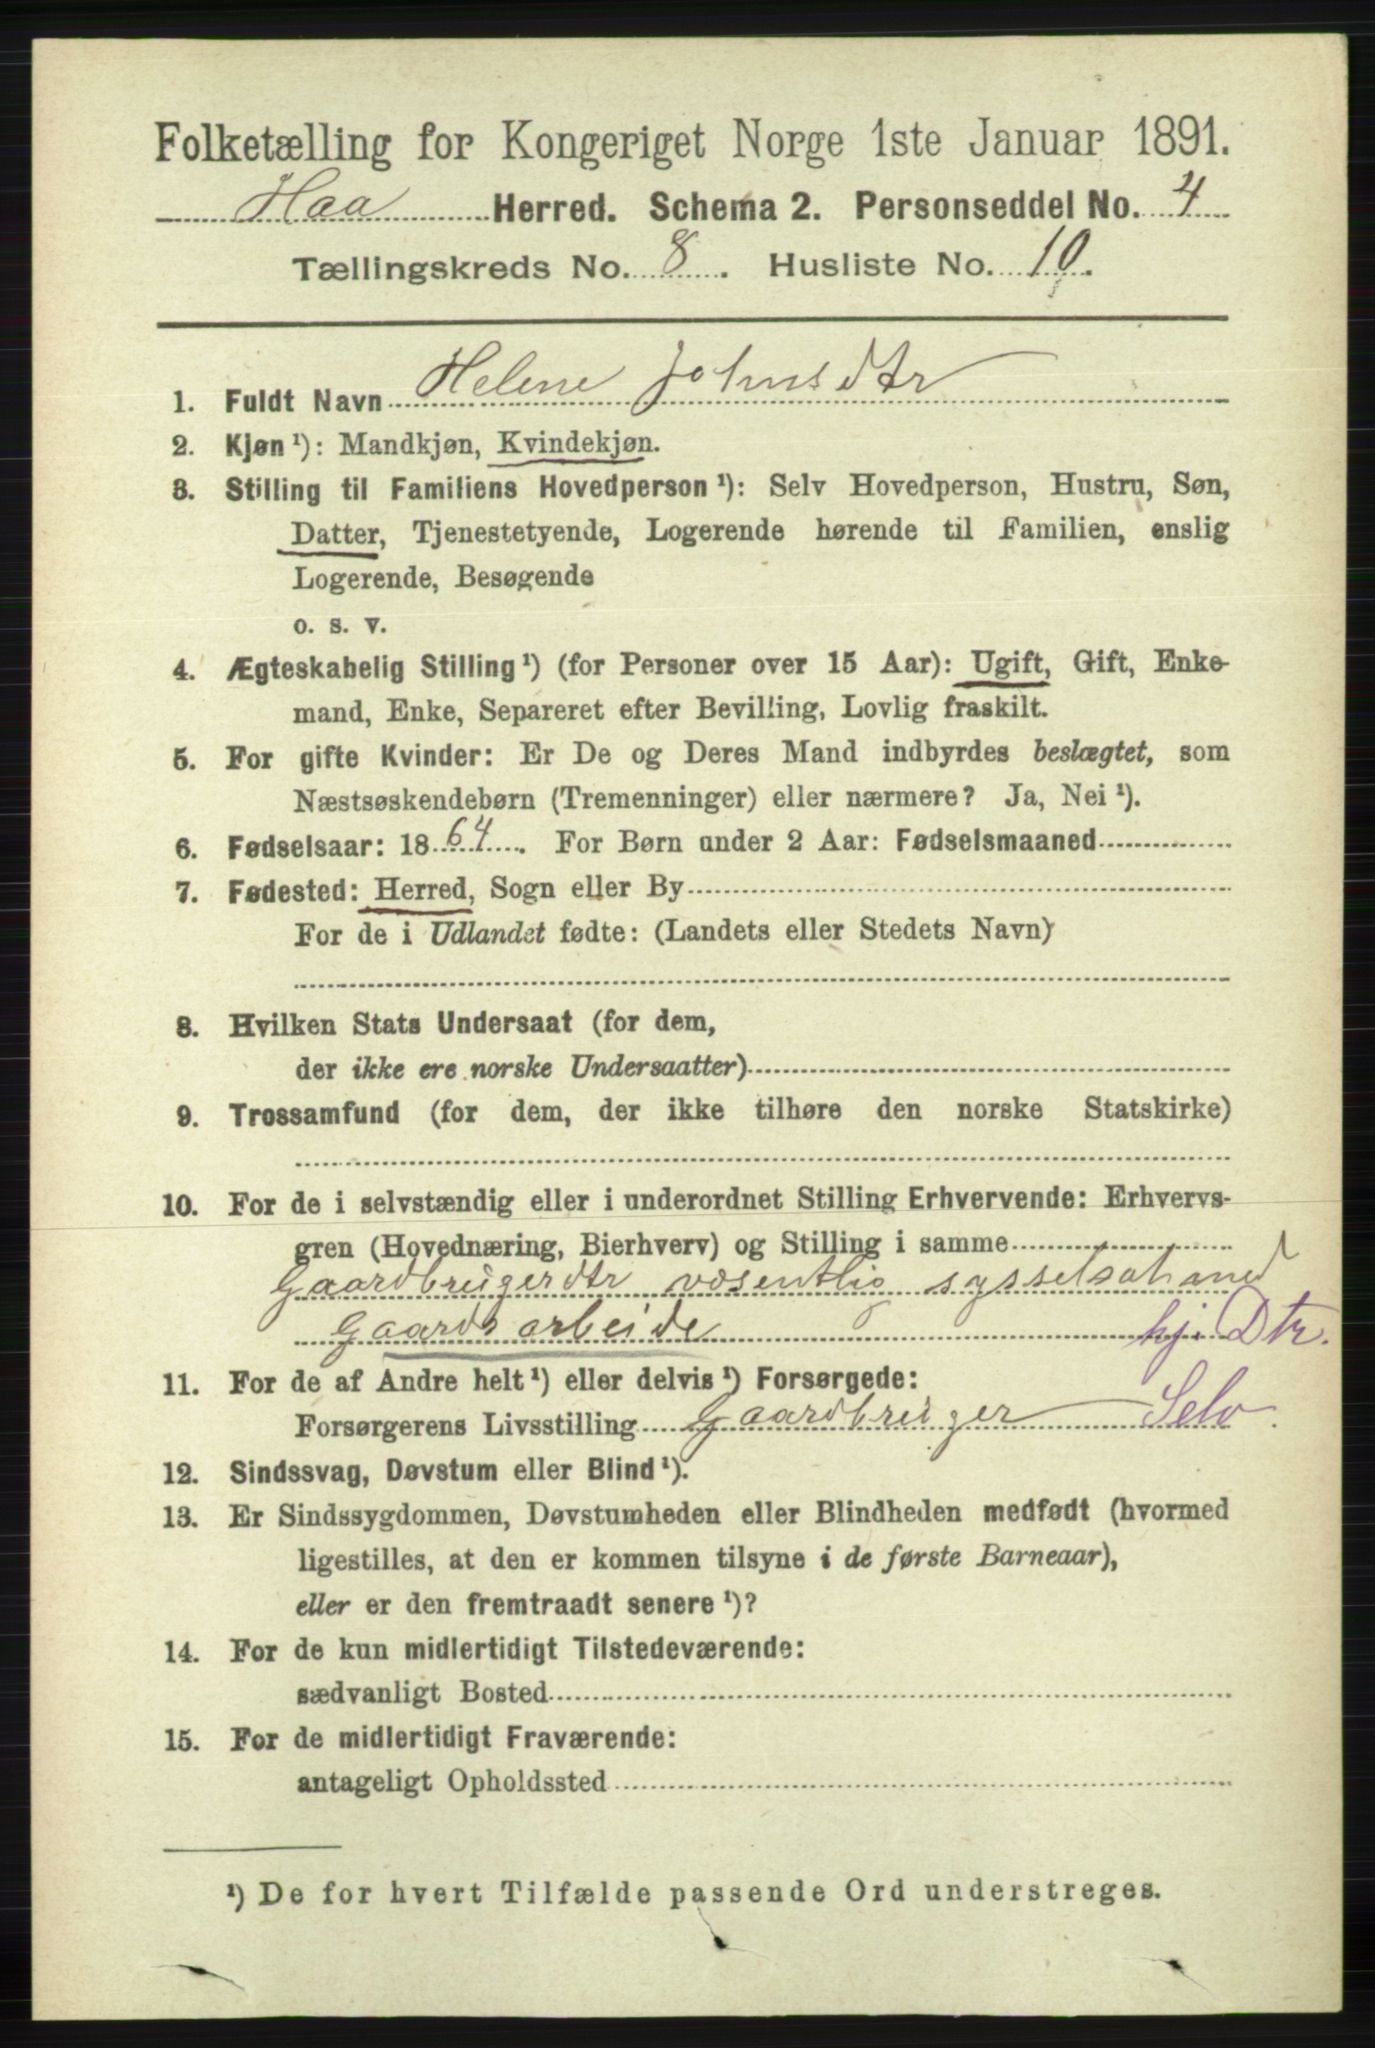 Folketælling for Kongeriget Norge 1ste Januar 1891.
Haa Herred. Schema 2. Personseddel No. 4
Tællingskreds No. 8. Husliste No. 10.
1. Fuldt Navn Helene Johnsdtr
2. Kjøn ¹): Mandkjøn, Kvindekjøn.
3. Stilling til Familiens Hovedperson ¹): Selv Hovedperson, Hustru, Søn,
Datter, Tjenestetyende, Logerende hørende til Familien, enslig
Logerende, Besøgende
o. s. v.
4. Ægteskabelig Stilling ¹) (for Personer over 15 Aar): Ugift, Gift, Enke-
mand, Enke, Separeret efter Bevilling, Lovlig fraskilt.
5. For gifte Kvinder: Er De og Deres Mand indbyrdes beslægtet, som
Næstsøskendebørn (Tremenninger) eller nærmere? Ja, Nei ¹).
6. Fødselsaar: 1864. For Børn under 2 Aar: Fødselsmaaned
7. Fødested: Herred, Sogn eller By
For de i Udlandet fødte: (Landets eller Stedets Navn)
8. Hvilken Stats Undersaat (for dem,
der ikke ere norske Undersaatter)
9. Trossamfund (for dem, der ikke tilhøre den norske Statskirke)
10. For de i selvstændig eller i underordnet Stilling Erhvervende: Erhvervs-
gren (Hovednæring, Bierhverv) og Stilling i samme
Gaardbrugerdtr væsentlig sysselsat med
Gaardsarbeide hj. Dtr.
11. For de af Andre helt ¹) eller delvis ¹) Forsørgede:
Forsørgerens Livsstilling Gaardbruger Selv.
12. Sindssvag, Døvstum eller Blind ¹).
13. Er Sindssygdommen, Døvstumheden eller Blindheden medfødt (hvormed
ligestilles, at den er kommen tilsyne i de første Barneaar),
eller er den fremtraadt senere ¹)?
14. For de kun midlertidigt Tilstedeværende:
sædvanligt Bosted
15. For de midlertidigt Fraværende:
antageligt Opholdssted
¹) De for hvert Tilfælde passende Ord understreges.